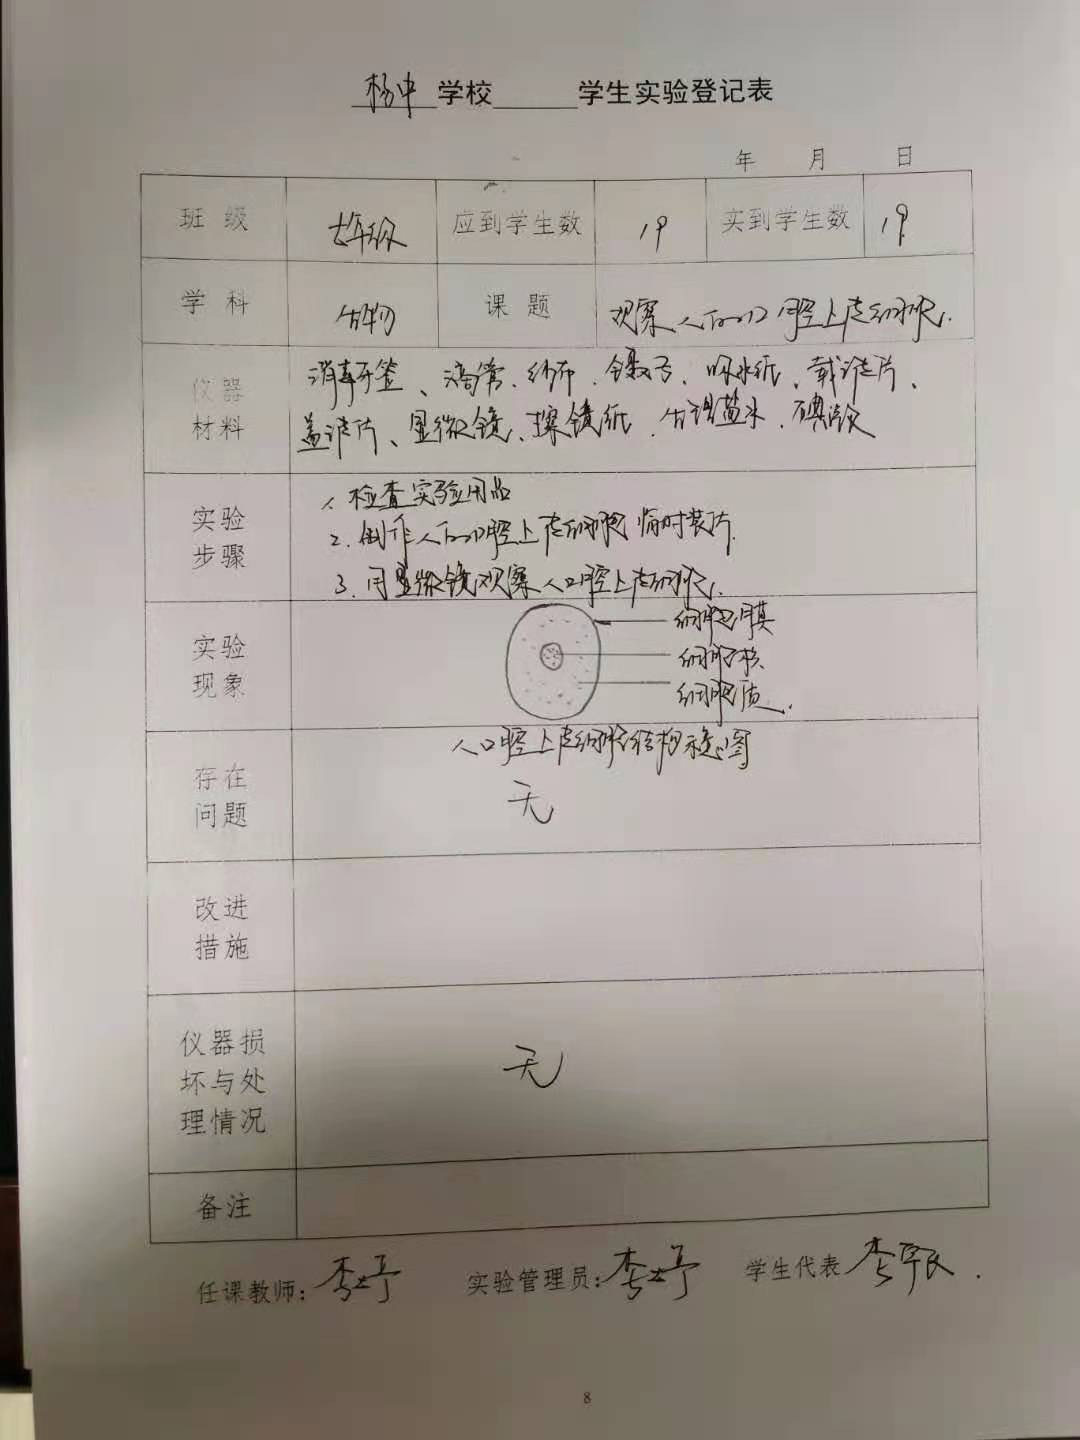 杨中学校______学生实验登记表
年 月 日
班级 七年级 应到学生数 19 实到学生数 19
学科 生物 课题 观察人的口腔上皮细胞.
仪器材料 消毒牙签、滴管、纱布、镊子、吸水纸、载玻片、
盖玻片、显微镜、擦镜纸、生理盐水、碘液
实验步骤 1.检查实验用品
2.制作人的口腔上皮细胞临时装片.
3.用显微镜观察人口腔上皮细胞.
实验现象 细胞膜
细胞核.
细胞质.
人口腔上皮细胞结构示意图
存在问题 无
改进措施
仪器损坏与处理情况 无
备注
任课教师: 李 实验管理员: 李 学生代表 李
8